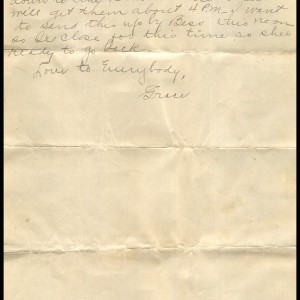 down to
will get them about 4 PM. I want
to send this up by Bess this noon
so I'll close for this time as she's
ready to go back.
Love to Everybody,
Grace